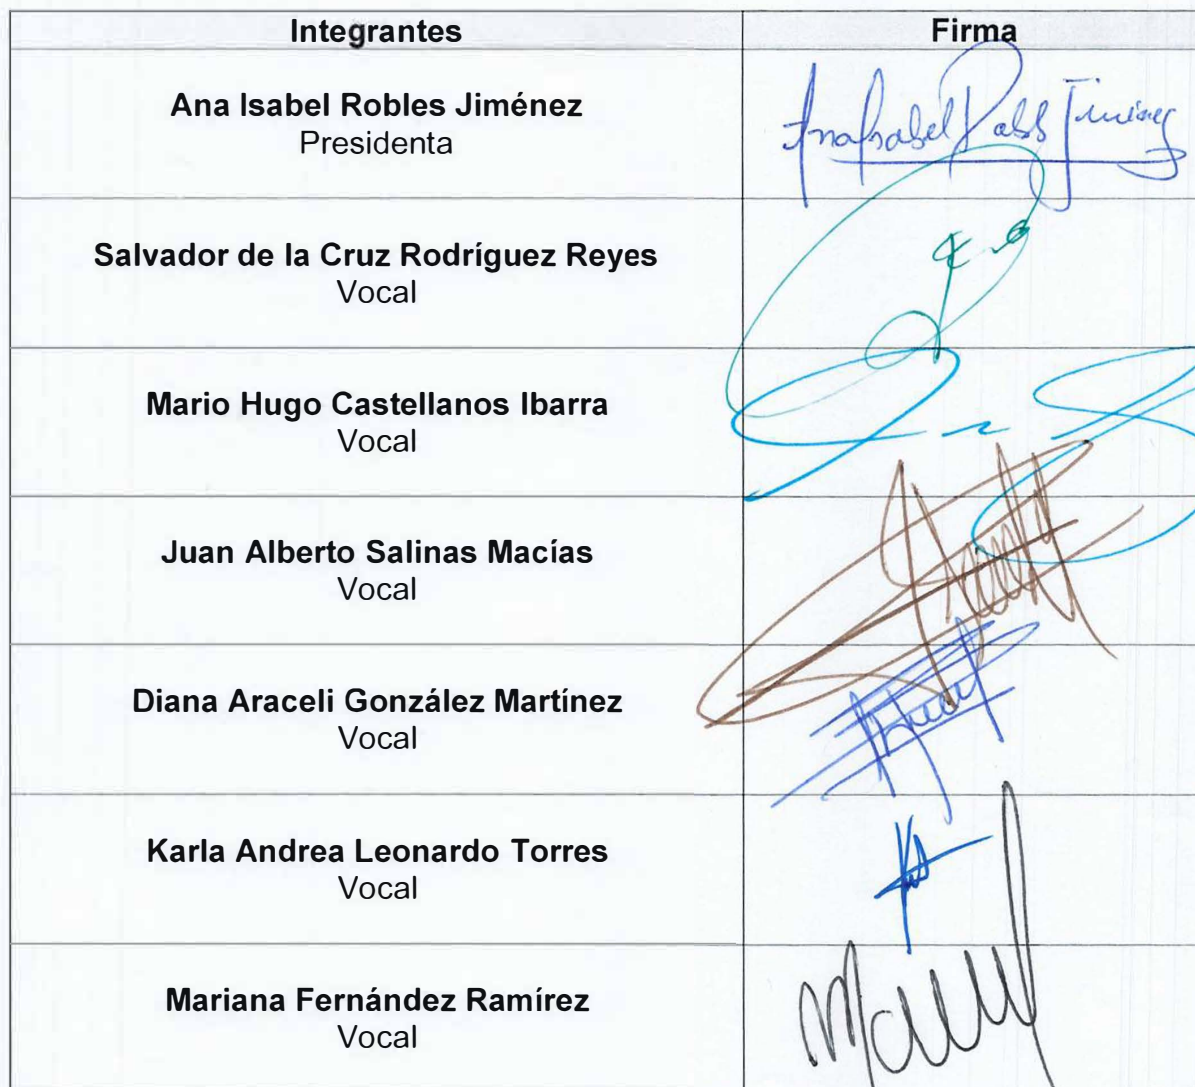 Integrantes Firma
Ana Isabel Robles Jiménez
Presidenta
AnaIsabel Robls Jiménez
Salvador de la Cruz Rodríguez Reyes
Vocal
Mario Hugo Castellanos Ibarra
Vocal
Juan Alberto Salinas Macías
Vocal
Diana Araceli González Martínez
Vocal
Karla Andrea Leonardo Torres
Vocal
Mariana Fernández Ramírez
Vocal